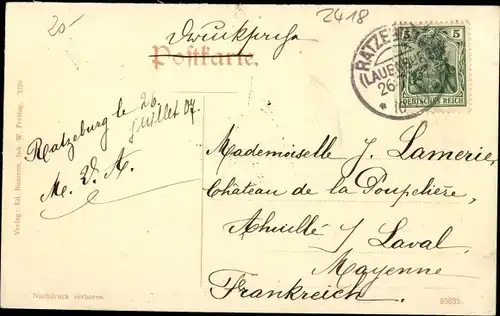 20-
2418
Drucksache
Postkarte.
5 5
DEUTSCHES REICH
RATZEBURG
(LAUENBURG)
26
Ratzeburg le 26
juillet 07.
M. V. A.
Mademoiselle J. Lamerie,
Château de la Poupelière,
Ahuillé s/ Laval,
Mayenne
Frankreich.
Verlag: Ed. Inh W Freitag.
Nachdruck verboten.
85035.